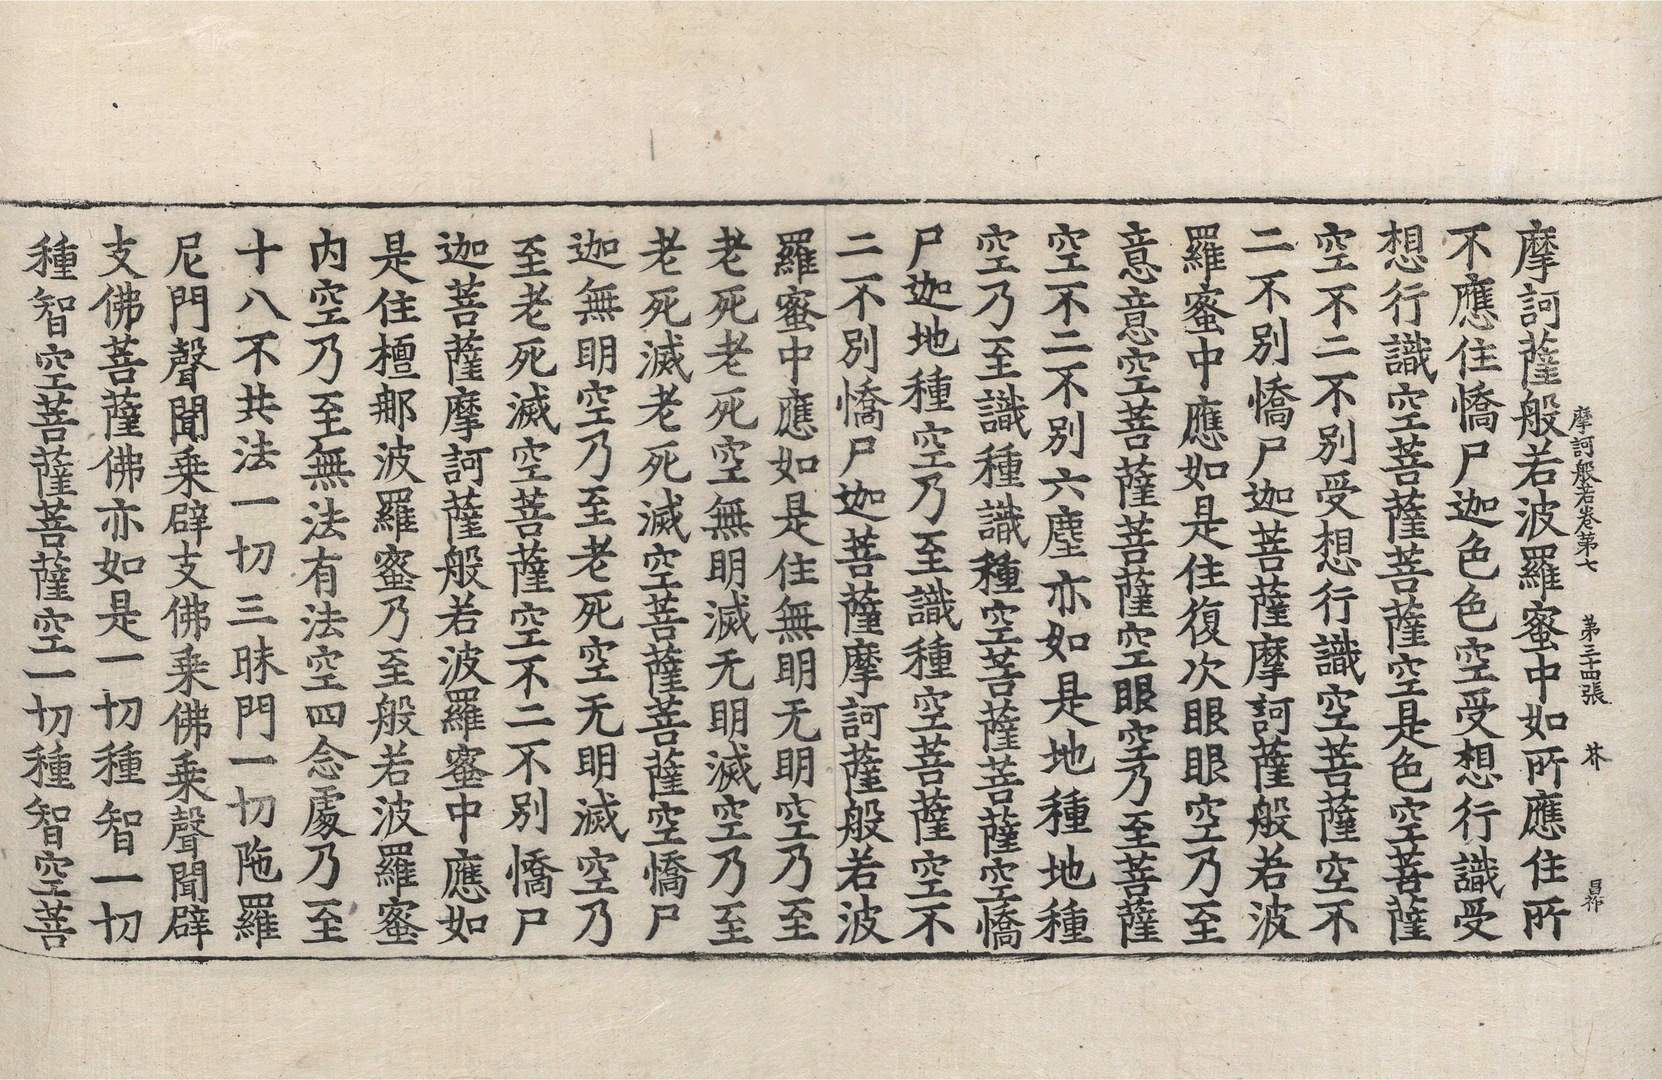 摩訶般若卷第七　第三十四張　芥　昌祚
摩訶薩般若波羅蜜中如所應住所
不應住憍尸迦色色空受想行識受
想行識空菩薩菩薩空是色空菩薩
空不二不别受想行識空菩薩空不
二不别憍尸迦菩薩摩訶薩般若波
羅蜜中應如是住復次眼眼空乃至
意意空菩薩菩薩空眼空乃至菩薩
空不二不别六塵亦如是地種地種
空乃至識種識種空菩薩菩薩空憍
尸迦地種空乃至識種空菩薩空不
二不别憍尸迦菩薩摩訶薩般若波
羅蜜中應如是住無明无明空乃至
老死老死空無明滅无明滅空乃至
老死滅老死滅空菩薩菩薩空憍尸
迦無明空乃至老死空无明滅空乃
至老死滅空菩薩空不二不别憍尸
迦菩薩摩訶薩般若波羅蜜中應如
是住檀那波羅蜜乃至般若波羅蜜
内空乃至無法有法空四念處乃至
十八不共法一切三昧門一切陁羅
尼門聲聞乗辟支佛乗佛乗聲聞辟
支佛菩薩佛亦如是一切種智一切
種智空菩薩菩薩空一切種智空菩